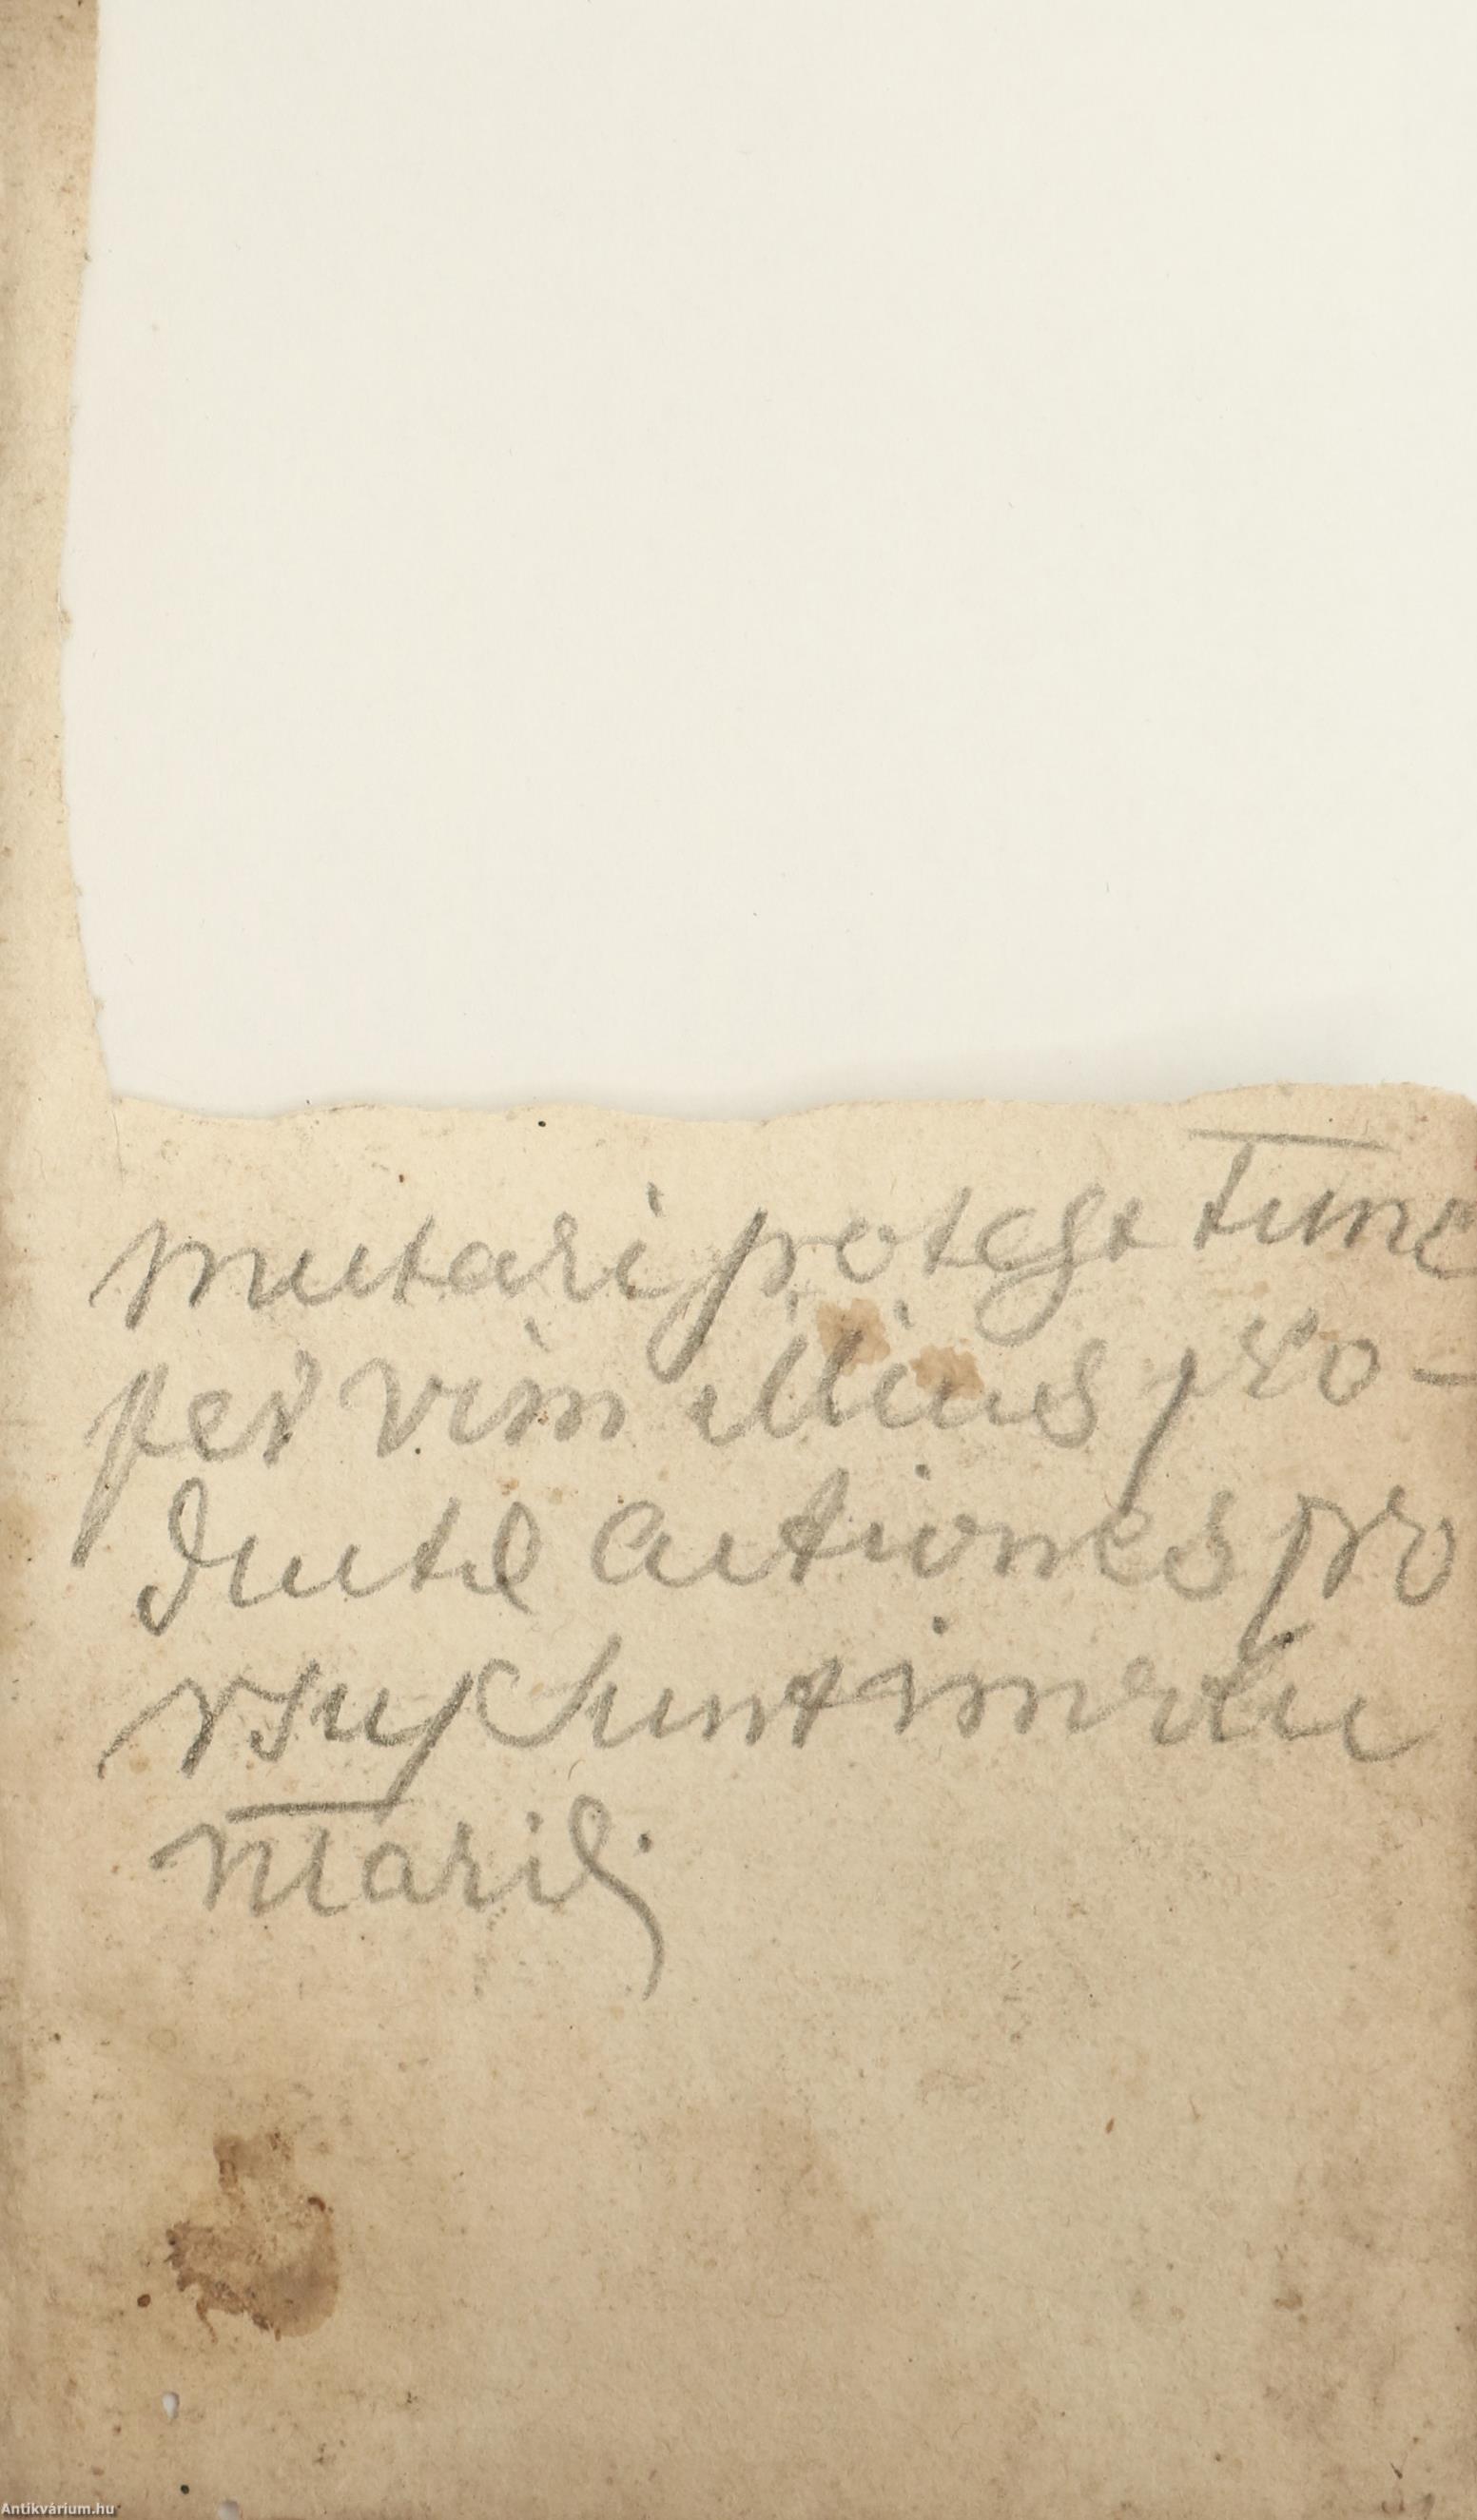 mutari potest tunc
per vim illius pro-
ductæ actiones pro
rsus sunt involu
ntariæ,
Antikvárium.hu